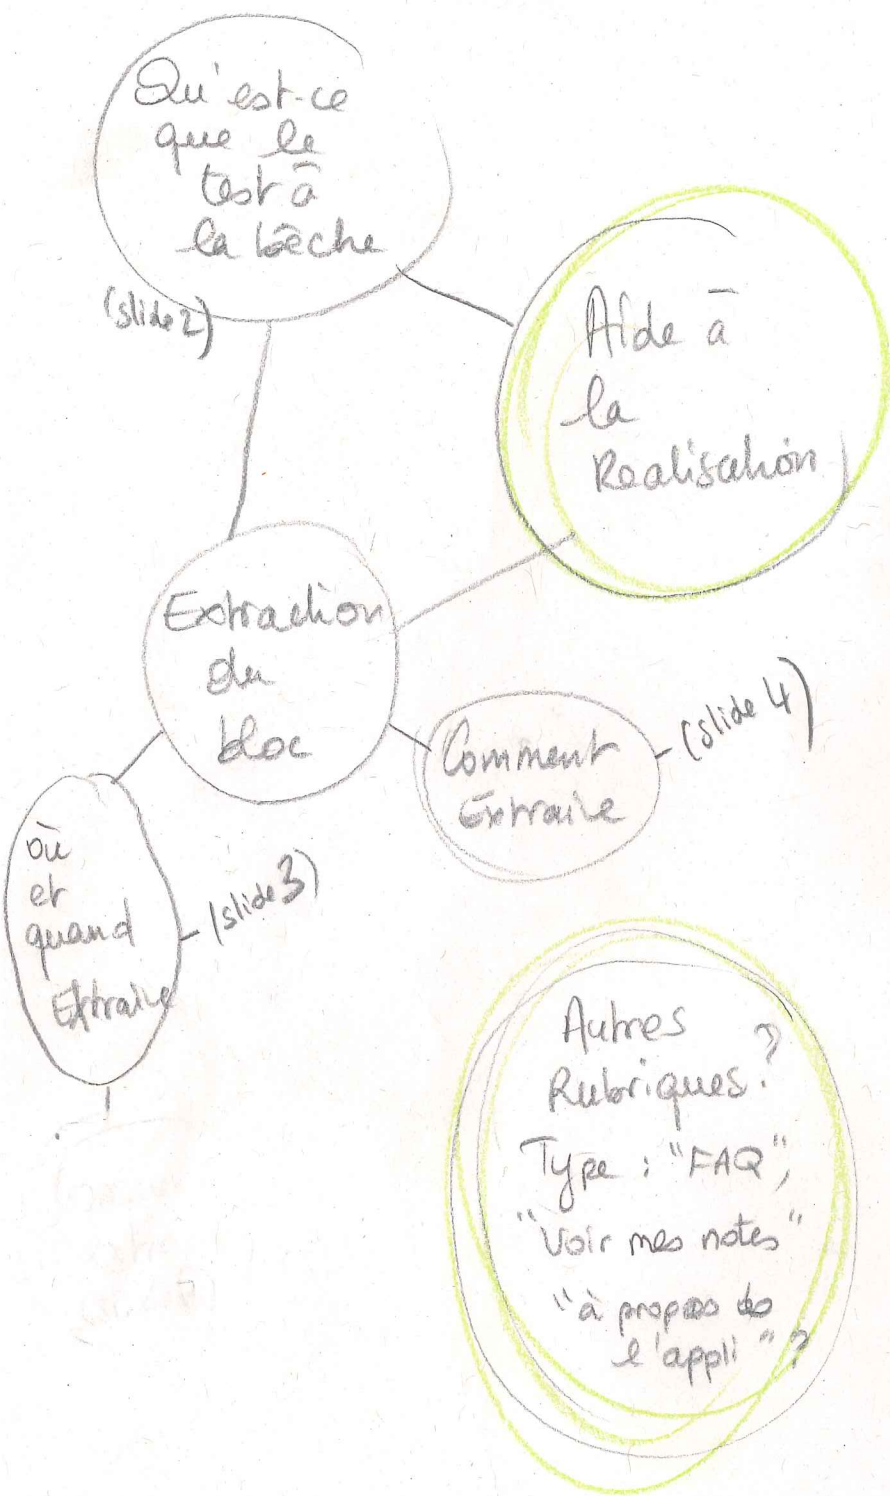 Qu'est-ce
que le
test à
la bêche
(slide 2)
Aide à
la
Realisation
Extraction
du
bloc
Comment
Extraire
(slide 4)
où
et
quand
Extraire
(slide 3)
Autres
Rubriques ?
Type : "FAQ",
"Voir mes notes"
"à propos de
l'appli" ?